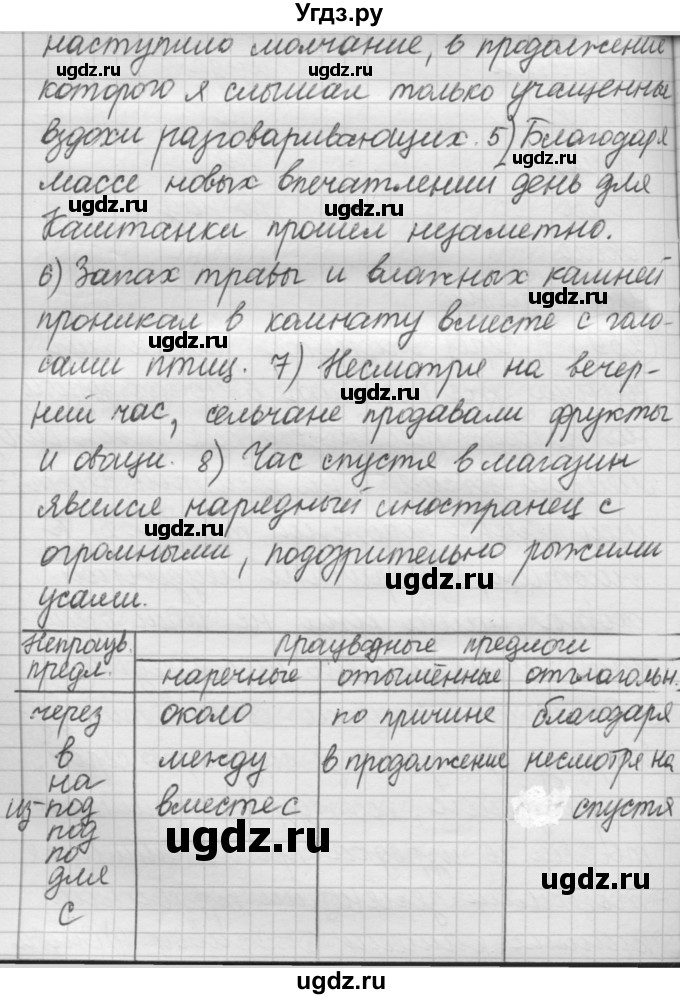 Угдз.ру
наступило молчание, в продолжение
которого я слышал только учащенны
вздохи разговаривающих. 5) Благодаря
массе новых впечатлений день для
Каштанки прошел незаметно.
6) Запах травы и влажных камней
проникал в комнату вместе с голо-
сами птиц. 7) Несмотря на вечер-
ний час, сельчане продавали фрукты
и овощи. 8) Час спустя в магазин
явился нарядный иностранец с
огромными, подозрительно рыжими
усами.
Непроизв. предл.
Производные предлоги
наречные отымённые отглагольн.
через около по причине благодаря
в между в продолжение несмотря на
на
из-под вместе с спустя
под
по
для
с
ugdz.ru
ugdz.ru
ugdz.ru
ugdz.ru
ugdz.ru
ugdz.ru
ugdz.ru
ugdz.ru
ugdz.ru
ugdz.ru
ugdz.ru
ugdz.ru
ugdz.ru